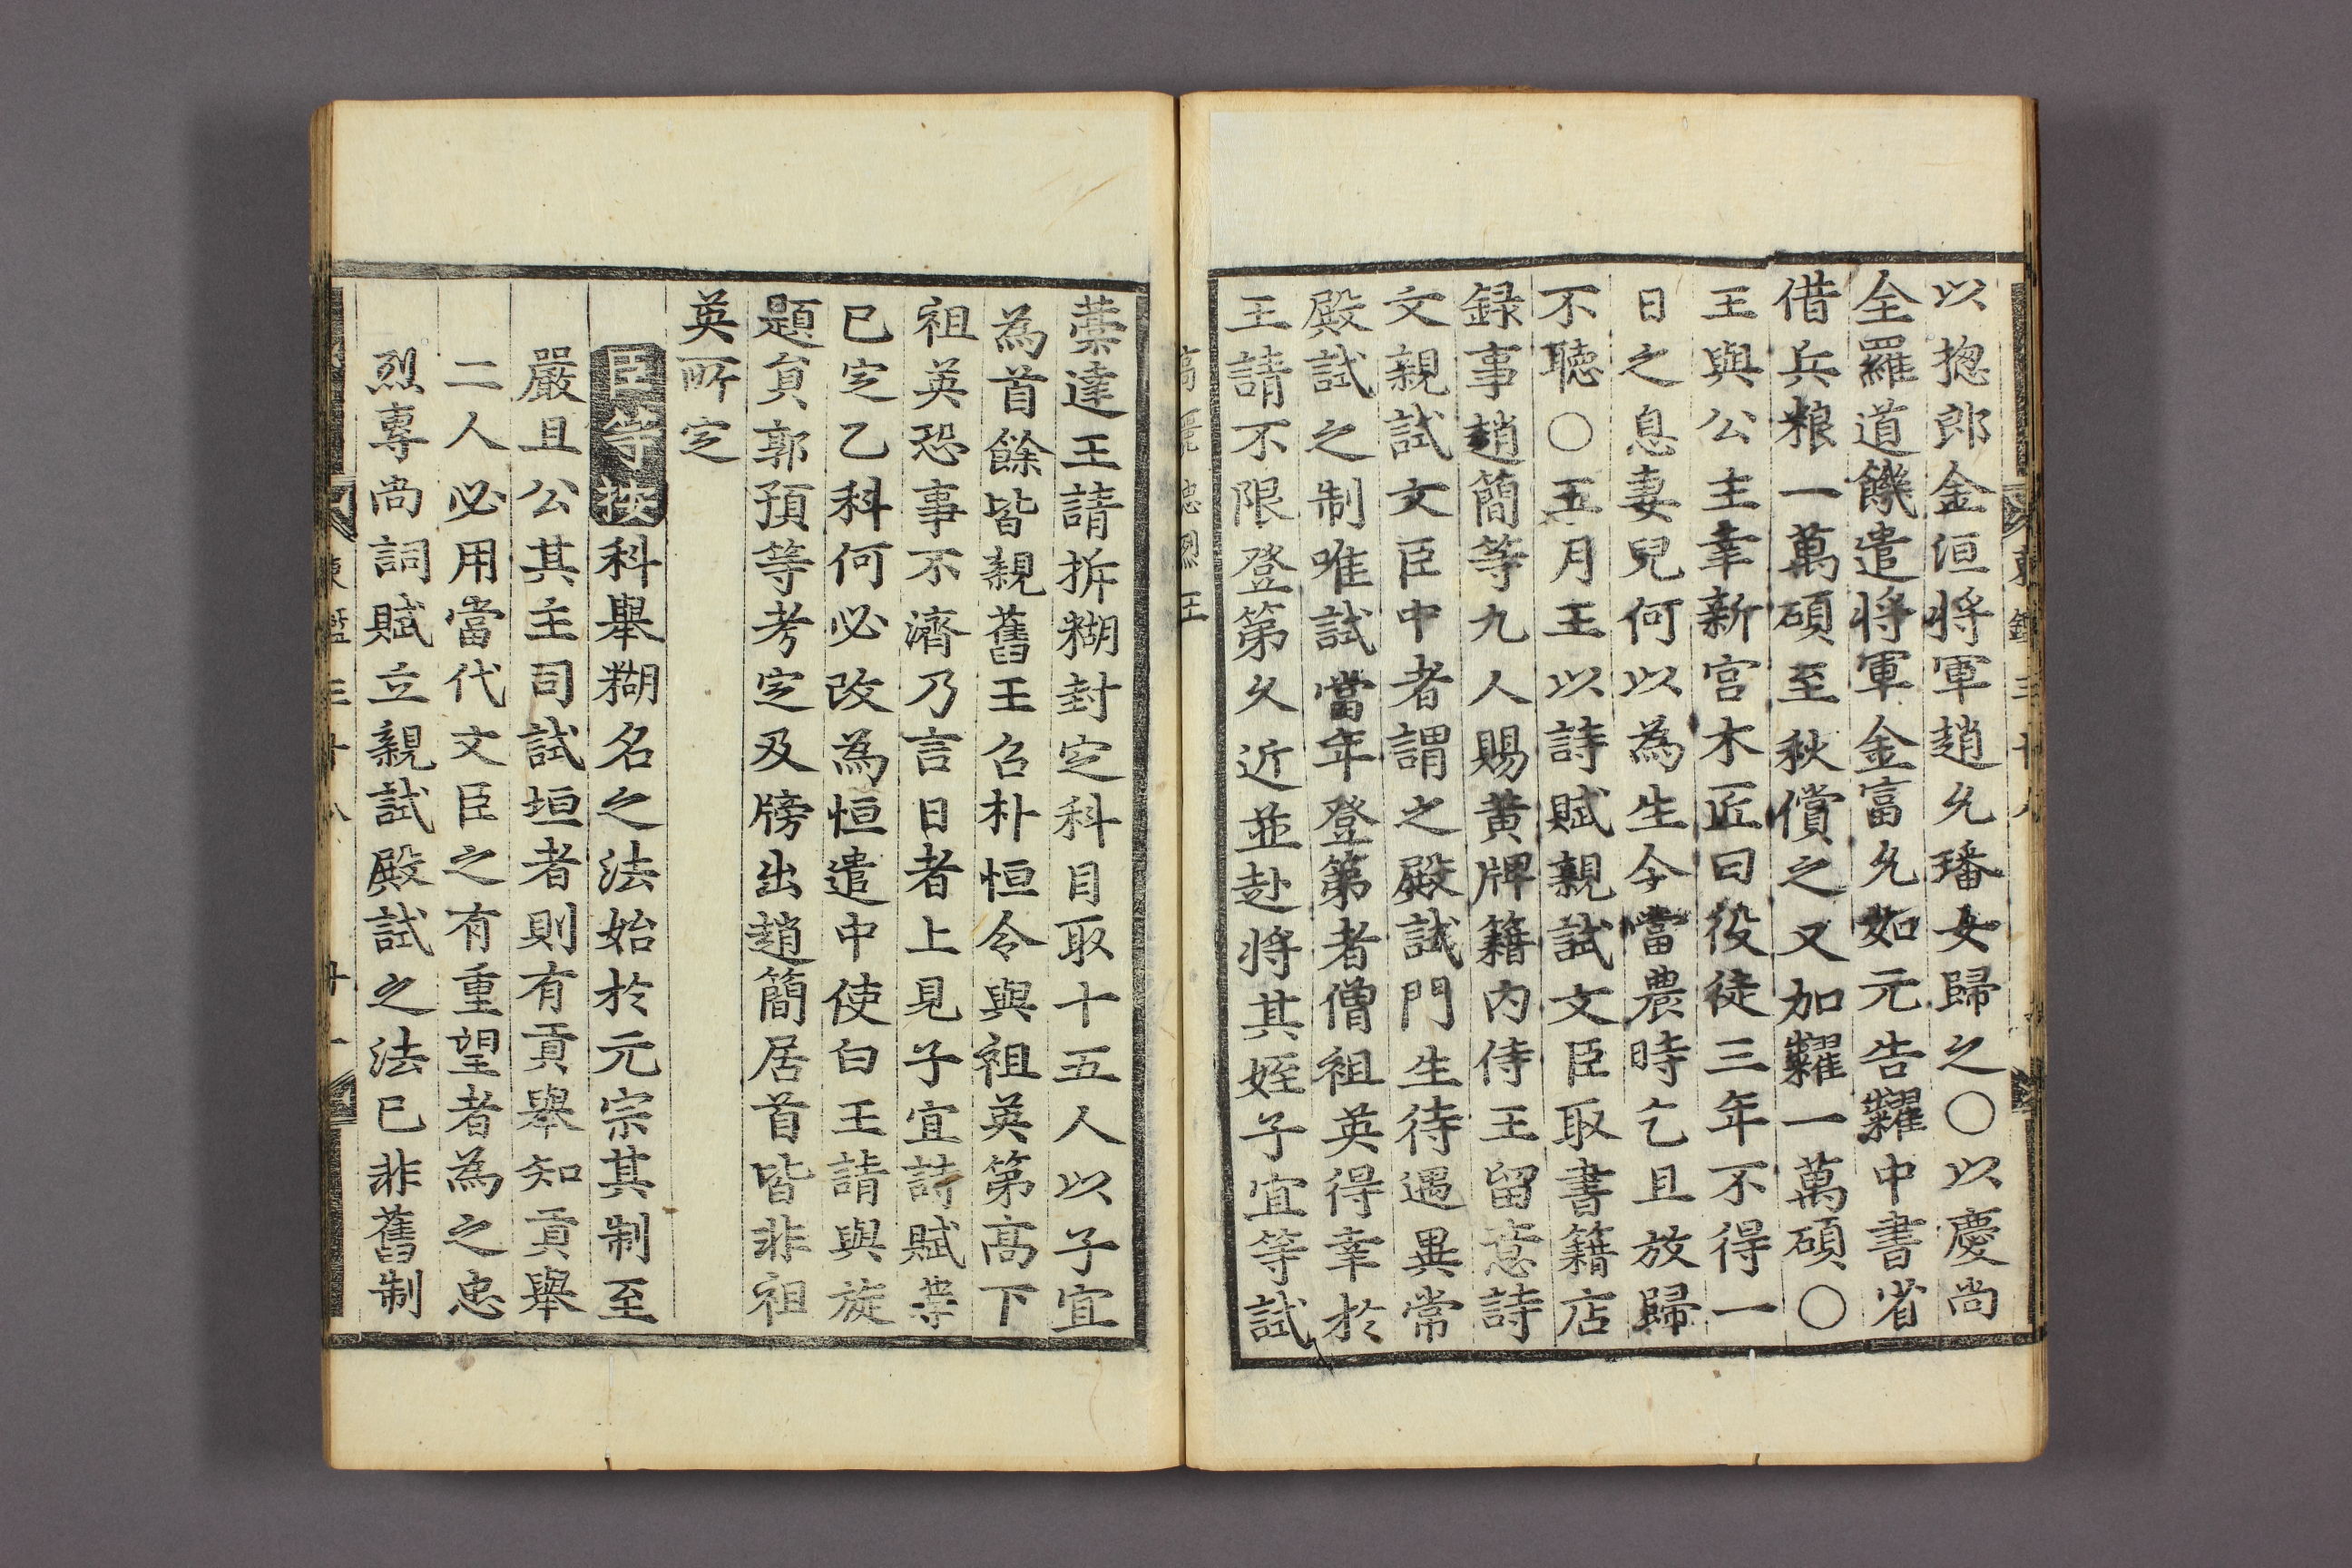 以揔郎金洹将軍趙允璠女歸之○以慶尚
全羅道饑遣将軍金富允如元告糶中書省
借兵粮一萬碩至秋償之又加糶一萬碩○
王與公主幸新宮木匠曰役徒三年不得一
日之息妻兒何以為生今當農時乞且放歸
不聴○五月王以詩賦親試文臣取書籍店
録事趙簡等九人賜黄牌籍内侍王留意詩
文親試文臣中者謂之殿試門生待遇異常
殿試之制唯試當年登第者僧祖英得幸於
王請不限登第久近並赴将其姪子宜等試
高麗忠烈王
藁達王請拆糊封定科目取十五人以子宜
為首餘皆親舊王召朴恒令與祖英第高下
祖英恐事不濟乃言日者上見子宜詩賦藁
已定乙科何必改為恒遣中使白王請與旋
題負郭預等考定及牓出趙簡居首皆非祖
英所定
臣等按科舉糊名之法始於元宗其制至
嚴且公其主司試垣者則有貢舉知貢舉
二人必用當代文臣之有重望者為之忠
烈專尚詞賦立親試殿試之法已非舊制